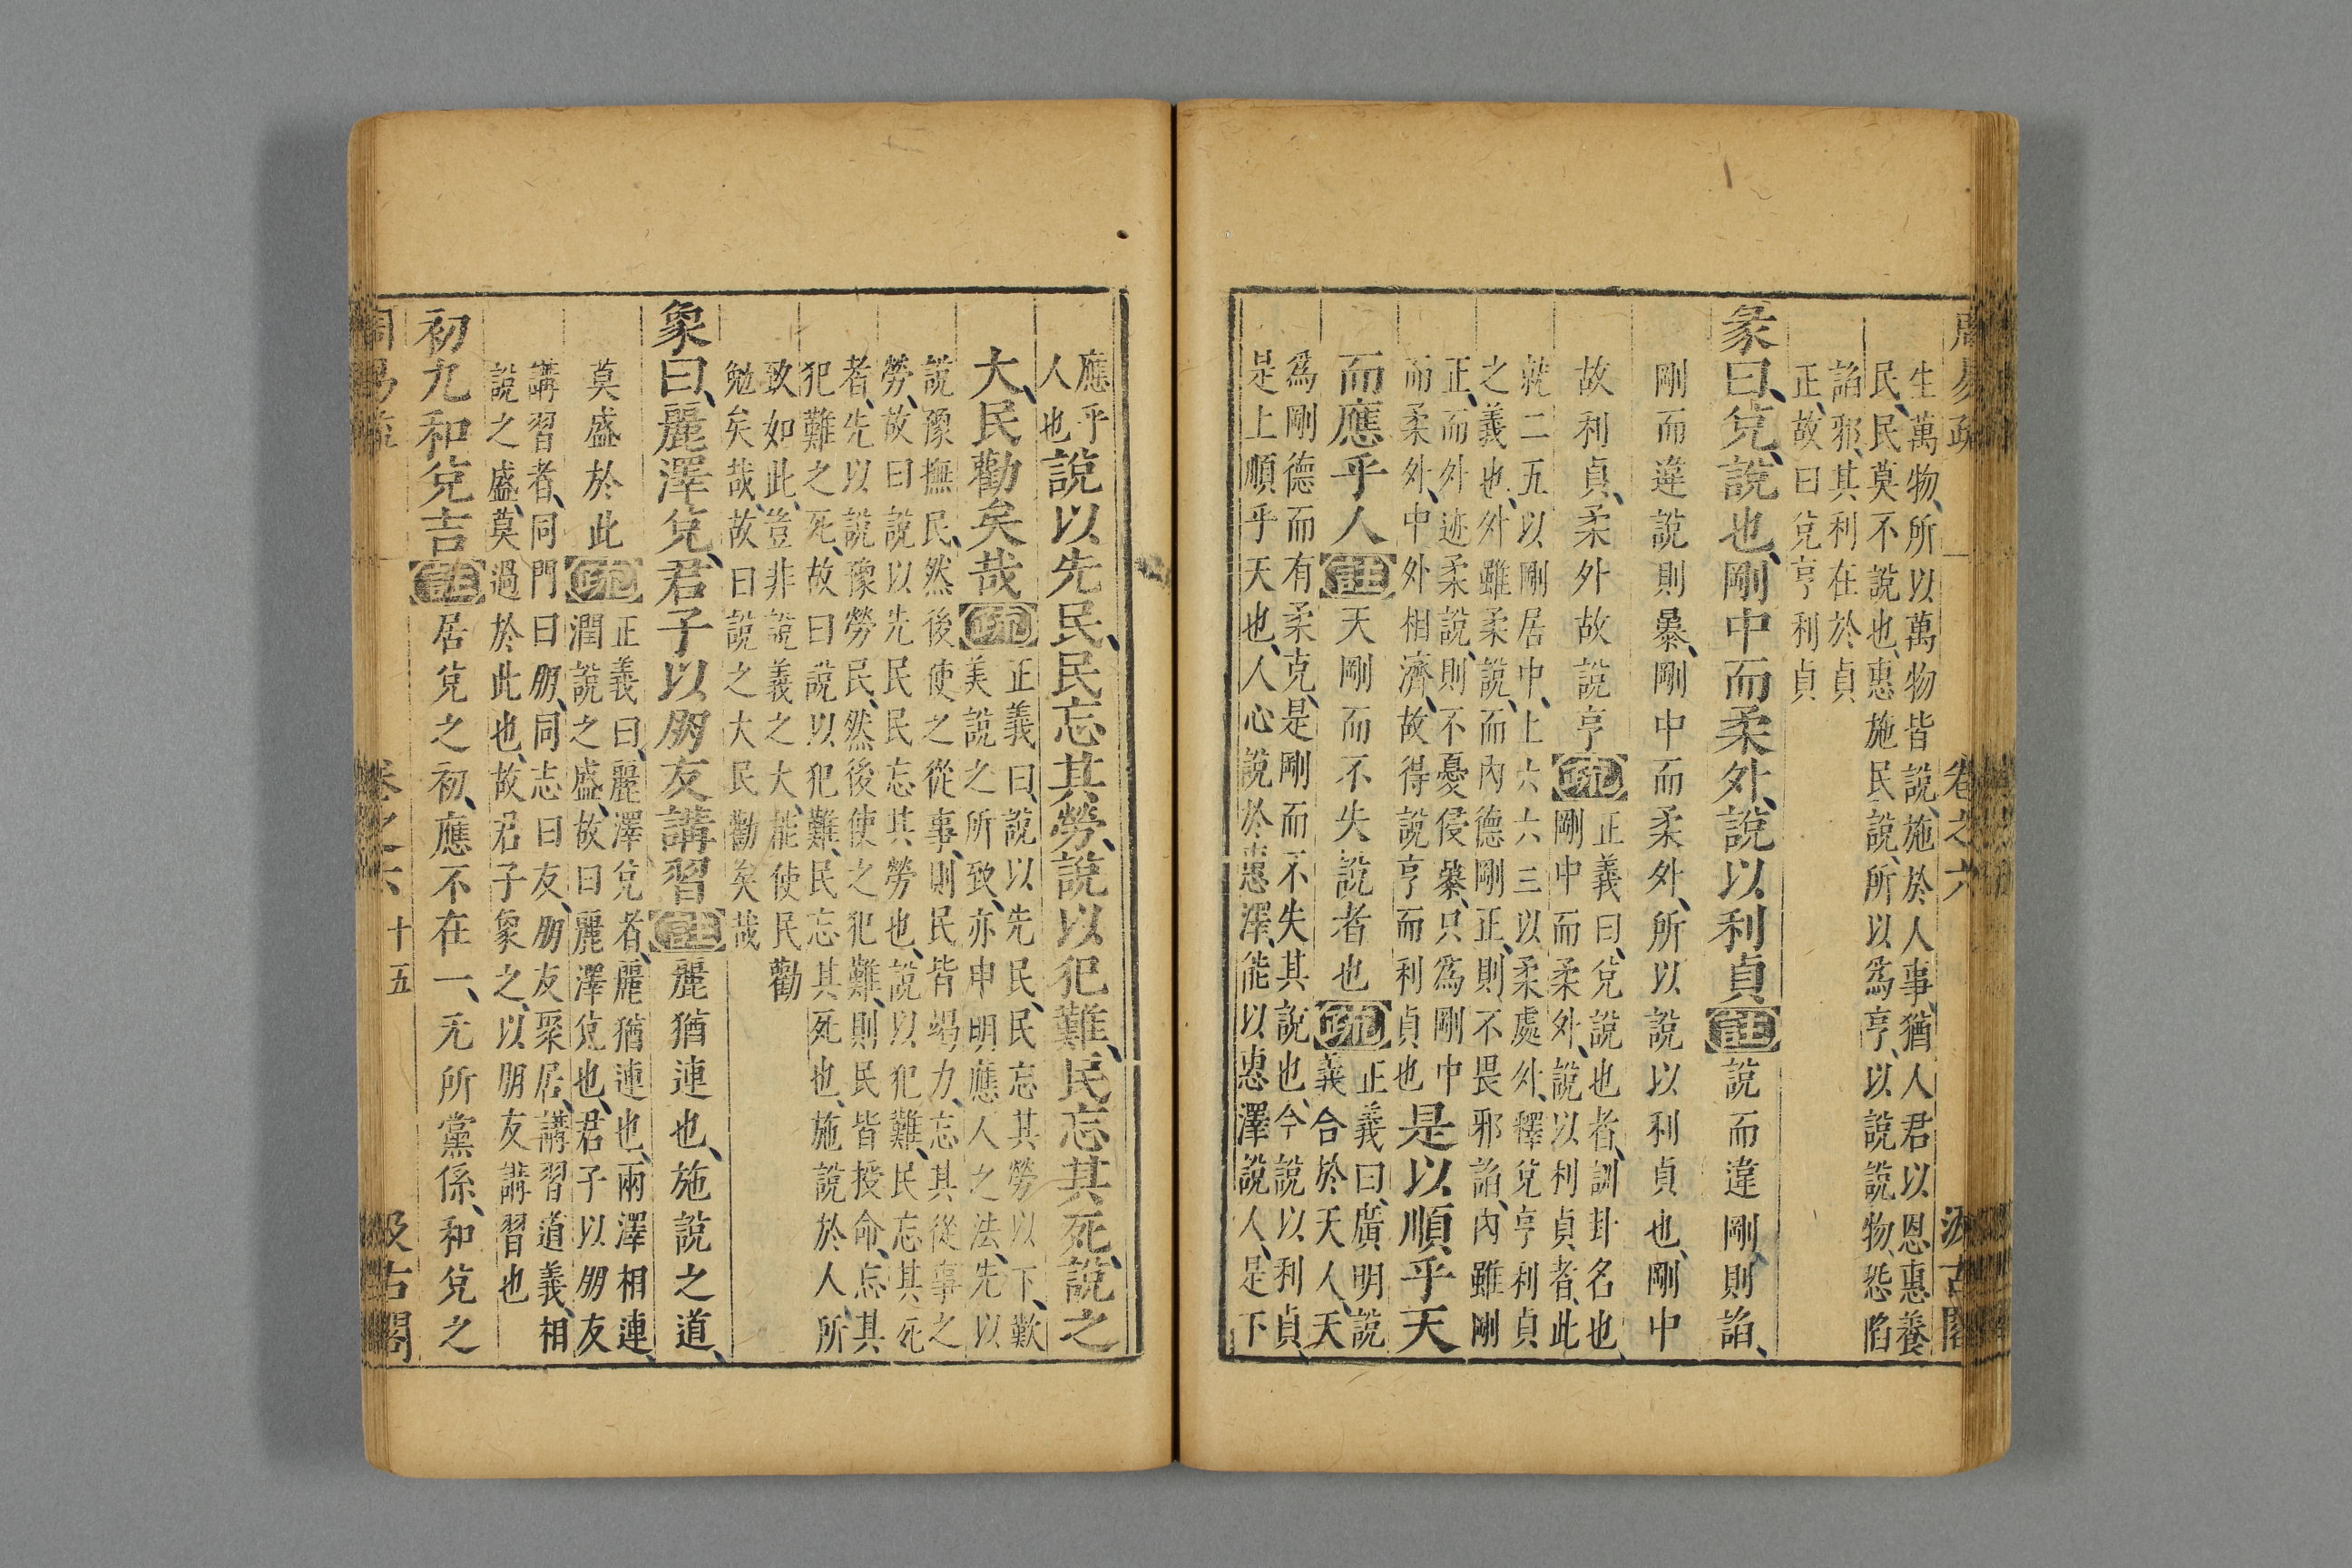 周易疏 卷之六 汲古閣
生萬物、所以萬物皆說、施於人事、猶人君以恩惠養
民、民莫不說也、惠施民說、所以爲亨、以說說物、恐陷
諂邪、其利在於貞
正、故曰兌亨利貞
彖曰、兌、說也、剛中而柔外、說以利貞註說而違剛、則諂、
剛而違說則暴、剛中而柔外、所以說以利貞也、剛中
故利貞、柔外故說亨疏正義曰、兌說也者、訓卦名也、
剛中而柔外、說以利貞者、此
就二五以剛居中、上六六三以柔處外、釋兌亨利貞
之義也、外雖柔說、而內德剛正、則不畏邪諂、內雖剛
正、而外迹柔說、則不憂侵暴、只爲剛中
而柔外、中外相濟、故得說亨而利貞也是以順乎天
而應乎人註天剛而不失說者也疏正義曰、廣明說
義合於天人、天
爲剛德而有柔克、是剛而不失其說也、今說以利貞、
是上順乎天也、人心說於惠澤、能以惠澤說人、是下
應乎
人也說以先民、民忘其勞、說以犯難、民忘其死、說之
大、民勸矣哉疏正義曰、說以先民、民忘其勞以下、歎
美說之所致、亦申明應人之法、先以
說豫撫民、然後使之從事、則民皆竭力、忘其從事之
勞、故曰說以先民民忘其勞也、說以犯難、民忘其死
者、先以說豫勞民、然後使之犯難、則民皆授命、忘其
犯難之死、故曰說以犯難、民忘其死也、施說於人、所
致如此、豈非說義之大、能使民勸
勉矣哉、故曰說之大民勸矣哉
象曰、麗澤兌、君子以朋友講習註麗猶連也、施說之道、
莫盛於此疏正義曰、麗澤兌者、麗猶連也、兩澤相連、
潤說之盛、故曰麗澤兌也、君子以朋友
講習者、同門曰朋、同志曰友、朋友聚居、講習道義、相
說之盛、莫過於此也、故君子象之、以朋友講習也
初九和兌吉註居兌之初、應不在一、无所黨係、和兌之
周易疏 卷之六 十五 汲古閣